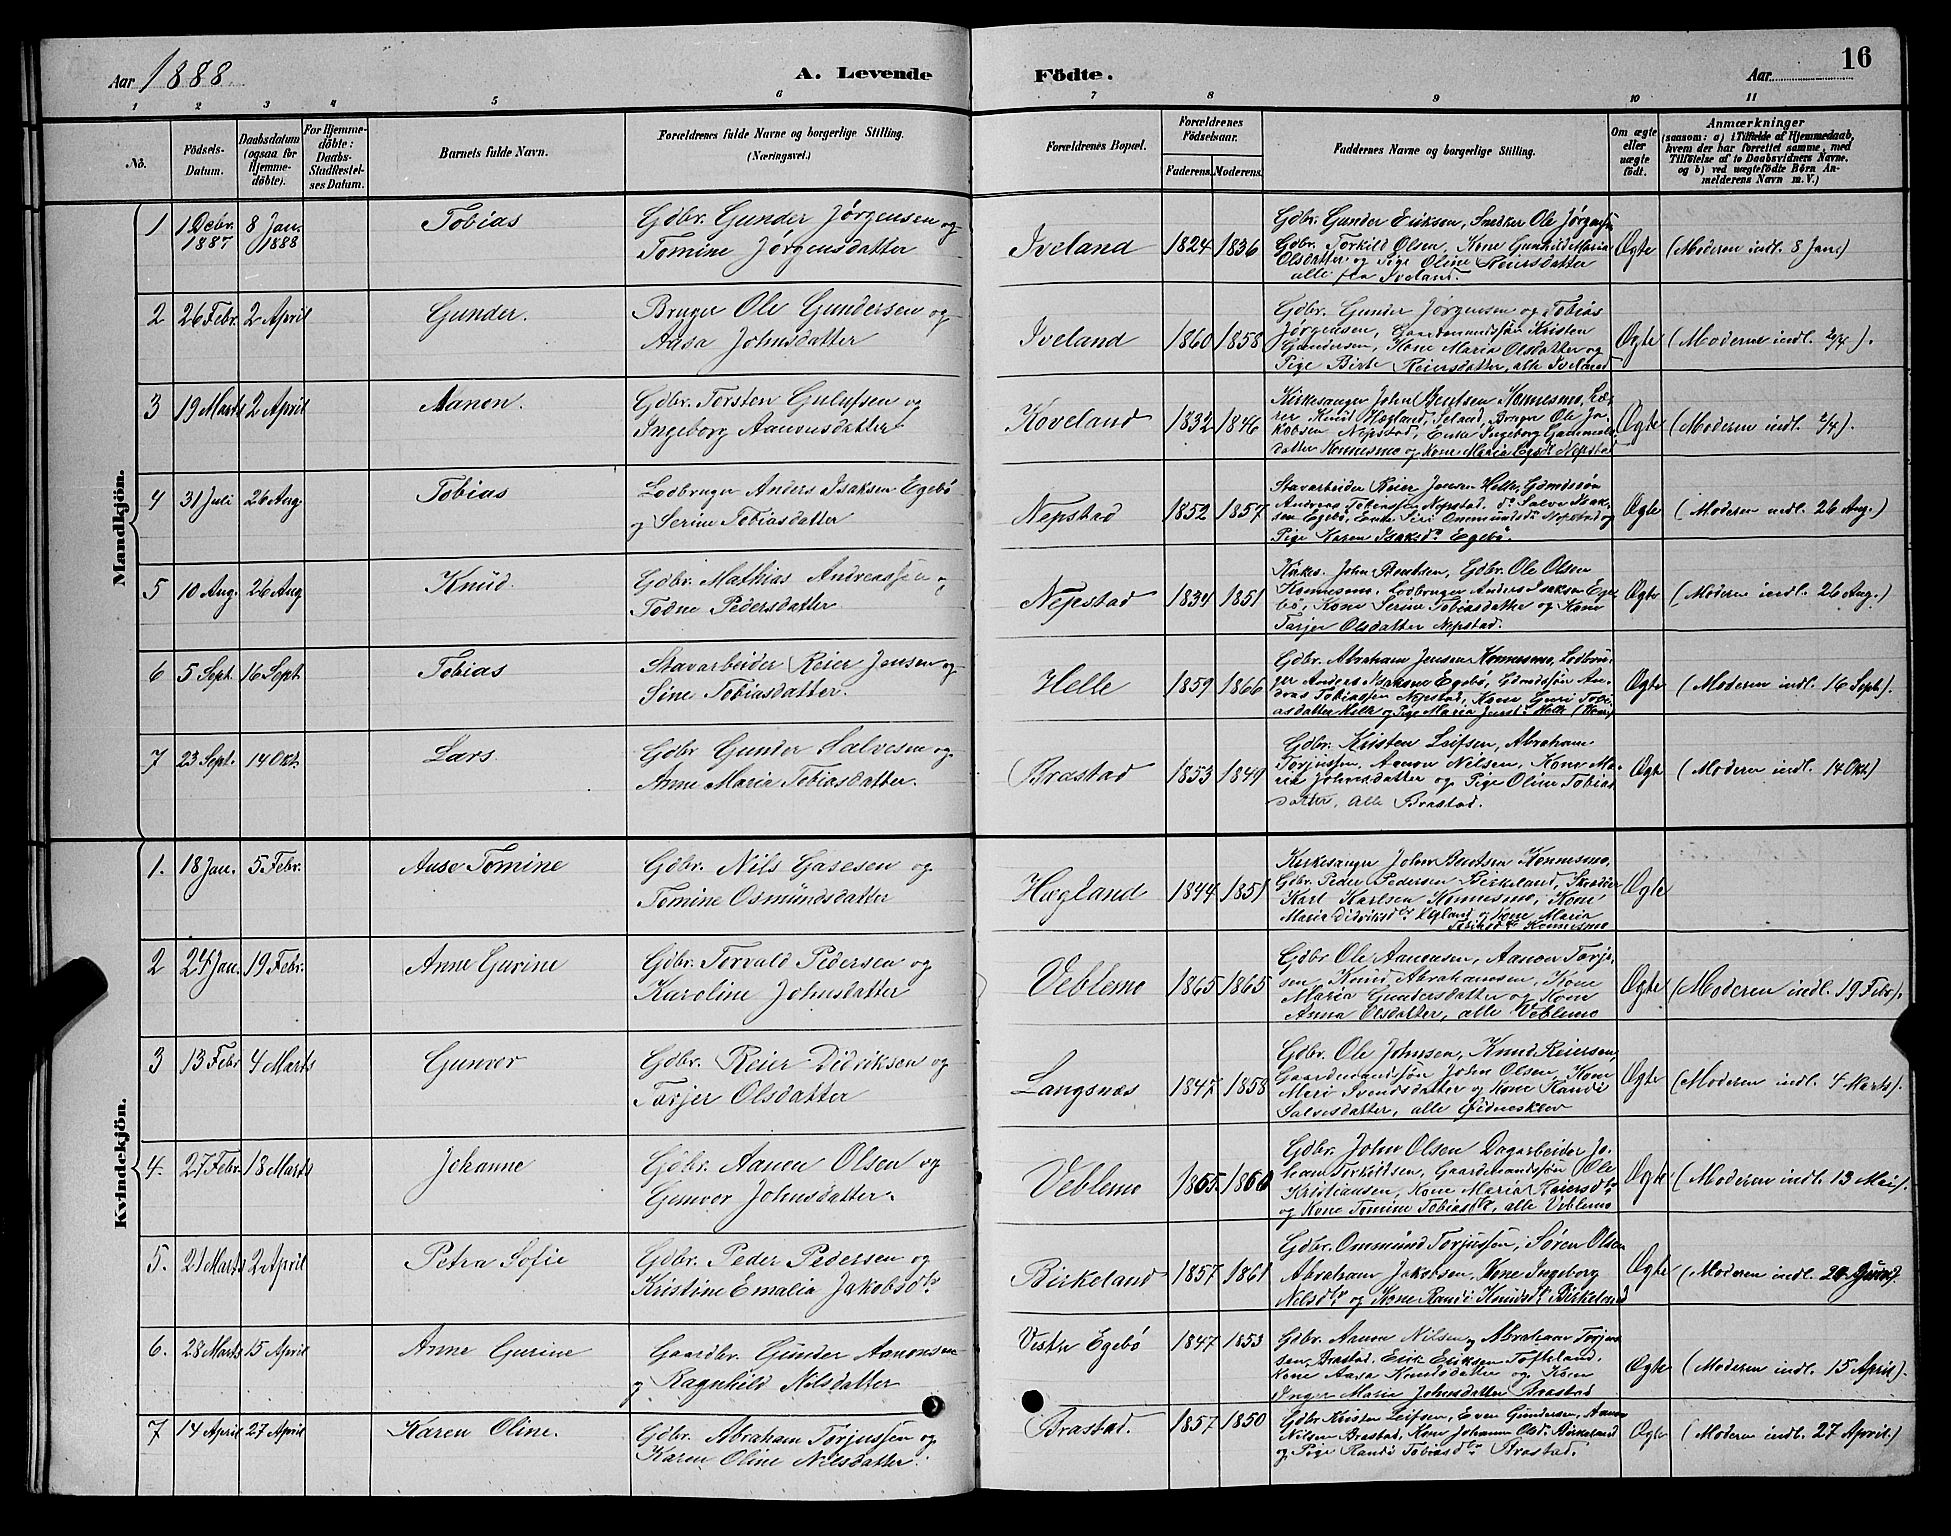 Aar 1888. A. Levende Födte. Aar 16
1 2 3 4 5 6 7 8 9 10 11
Nô. Födsels-Datum. Daabsdatum (ogsaa for Hjemme-döbte). For Hjemme-döbte: Daabs-Stadfæstel-ses Datum. Barnets fulde Navn. Forældrenes fulde Navne og borgerlige Stilling. (Næringsvei.) Forældrenes Bopæl. Forældrenes Födselsaar. Faderens. Moderens. Faddernes Navne og borgerlige Stilling. Om ægte eller uægte födt. Anmærkninger (saasom: a) i Tilfælde af Hjemmedaab, hvem der har forrettet samme, med Tilföielse af to Daabsvidners Navne. og b) ved uægtefödte Börn An-melderens Navn m. V.)
Mandkjön.
1 1 Debr. 1887 8 Jan. 1888 Tobias Gdbr. Gunder Jørgensen og
Tomine Jørgensdatter
Iveland 1824 1836
Gdbr. Gunder Eriksen, Snedker Ole Jørgensen
Gdbr. Torkild Olsen, Kone Gunhild Maria
Olsdatter og Pige Oline Reiersdatter
alle fra Iveland.
Ægte (Moderen indl. 8 Jan.)
2 26 Febr. 2 April Gunder. Bruger Ole Gundersen og
Aasa Johnsdatter
Iveland 1860 1858
Gdbr. Gunder Jørgensen og Tobias
Jørgensen, Gaardmandssøn Kristen
Gundersen, Kone Maria Olsdatter og
Pige Birte Reiersdatter, alle Iveland
Ægte (Moderen indl. 2/4).
3 19 Marts 2 April Aanen. Gdbr. Torsten Gulufsen og
Ingeborg Aanensdatter
Koveland 1832 1846
Kirkesanger John Bentsen Konnesmo, Læ-
rer Knud Hægland, Bruger Ole Ja-
kobsen Nepstad, Enke Ingeborg Gammels-
datter Konnesmo og Kone Maria Nepstad
Ægte (Moderen indl. 2/4).
4 31 Juli 26 Aug. Tobias Lodbruger Anders Isaksen Egebö
og Serine Tobiasdatter
Nepstad 1852 1857
Stavarbeider Reier Jensen Helle, Gdmdssön
Andreas Tobiassen Nepstad, do Salve Isak-
sen Egebö, Enke Siri Ommundsdr Nepstad og
Pige Karen Isaksdr Egebö.
Ægte (Moderen indl. 26 Aug.)
5 10 Aug. 26 Aug Knud. Gdbr. Mathias Andreassen og
Todne Pedersdatter
Nepstad 1834 1851
Kirkes. John Bentsen, Gdbr. Ole Olsen
Konnesmo, Lodbruger Anders Isaksen Ege-
bö, Kone Serine Tobiasdatter og Kone
Tarjer Olsdatter Nepstad.
Ægte (Moderen indl. 26 Aug.)
6 5 Sept. 16 Sept Tobias Stavarbeider Reier Jensen og
Sine Tobiasdatter.
Helle 1859 1866
Gdbr. Abraham Jensen Konnesmo, Lodbru-
ger Anders Isaksen Egebö, Gdmdssön An-
dreas Tobiassen Nepstad, Kone Guri Tobi-
asdatter Helle og Pige Maria Jensdr Helle
Ægte (Moderen indl. 16 Sept).
7 23 Sept. 14 Okt. Lars. Gdbr Gunder Salvesen og
Anne Maria Tobiasdatter.
Brastad 1853 1849
Gdbr. Kristen Leifsen, Abraham
Torjussen, Aanon Nilsen, Kone Ma-
ria Johnsdatter og Pige Oline Tobias-
datter, alle Brastad.
Ægte (Moderen indl. 14 Okt)
Kvindekjön.
1. 18 Jan. 5 Febr. Aase Tomine Gdbr. Nils Gasesen og
Tomine Osmundsdatter
Hægland 1844 1851
Kirkesanger John Bentsen Konnesmo,
Gdbr. Peder Pedersen Birkeland, Skrædder
Karl Karlsen Konnesmo, Kone
Maria Didriksdtr Hægland og Kone Maria
Konnesmo
Ægte
2 24 Jan. 19 Febr. Anne Gurine Gdbr. Torvald Pedersen og
Karoline Johnsdatter
Veblemo 1865 1865
Gdbr. Ole Aanonsen, Aanon Torju-
sen, Knud Abrahamsen, Kone
Maria Gundersdatter og Kone
Anna Olsdatter, alle Veblemo
Ægte (Moderen indl. 19 Febr).
3 13 Febr 4 Marts Gunvor Gdbr. Reier Didriksen og
Tarjer Olsdatter
Langsnæs 1847 1858
Gdbr. Ole Johnsen, Knud Reiersen
Gaardmandssön John Olsen, Kone
Meri Svendsdatter og Kone Randi
Salvesdatter, alle Ødnesklev
Ægte (Moderen indl. 4 Marts).
4. 27 Febr. 18 Marts Johanne Gdbr. Aanen Olsen og
Gunvor Johnsdatter.
Veblemo 1865 1860
Gdbr. John Olsen, Dagarbeider Jo-
han Torkildsen, Gaardmandssön Ole
Kristiansen, Kone Maria Reiersdtr
og Kone Tomine Tobiasdtr, alle Veblemo
Ægte (Moderen indl. 13 Mai).
5. 21 Marts 2 April Petra Sofie Gdbr. Peder Pedersen og
Kristine Emalia Jakobsdtr
Birkeland 1857 1861
Gdbr. Ommund Torjussen, Søren Olsen
Abraham Jakobsen, Kone Ingeborg
Nilsdtr og Kone Randi Knudsdtr Birkeland
Ægte (Moderen indl. 24 Juni).
6. 28 Marts 15 April Anne Gurine Gaardbr. Gunder Aanonsen
og Ragnhild Nilsdatter
Vestre Egebö 1847 1853
Gdbr. Aanon Nilsen og Abraham Torjus-
sen Brastad, Erik Eriksen Tofteland,
Kone Aasa Knudsdatter og Kone
Inger Maria Johnsdatter Brastad
Ægte (Moderen indl. 15 April)
7 14 April 27 April Karen Oline. Gdbr. Abraham Torjussen og
Karen Oline Nilsdatter.
Brastad. 1857 1850
Gdbr Kristen Leifsen, Even Gundersen, Aanon
Nilsen Brastad, Kone Johanne Olsdr Birkeland
og Pige Randi Tobiasdtr Brastad.
Ægte (Moderen indl. 27 April.)